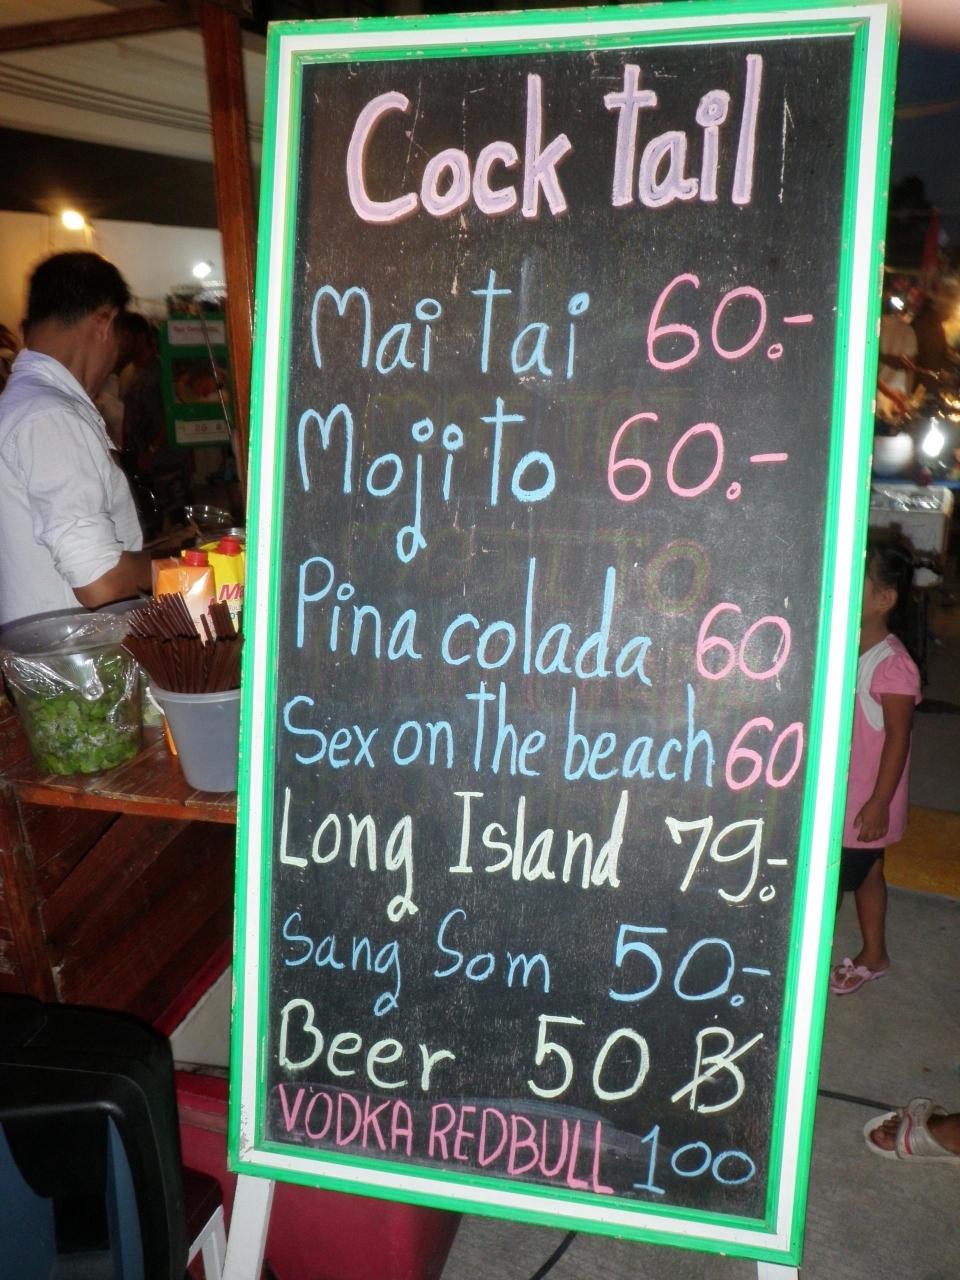 Cocktail
Mai Tai 60.-
Mojito 60.-
Pina colada 60
Sex on the beach 60
Long Island 79.-
Sang Som 50.-
Beer 50 ฿
VODKA REDBULL 100